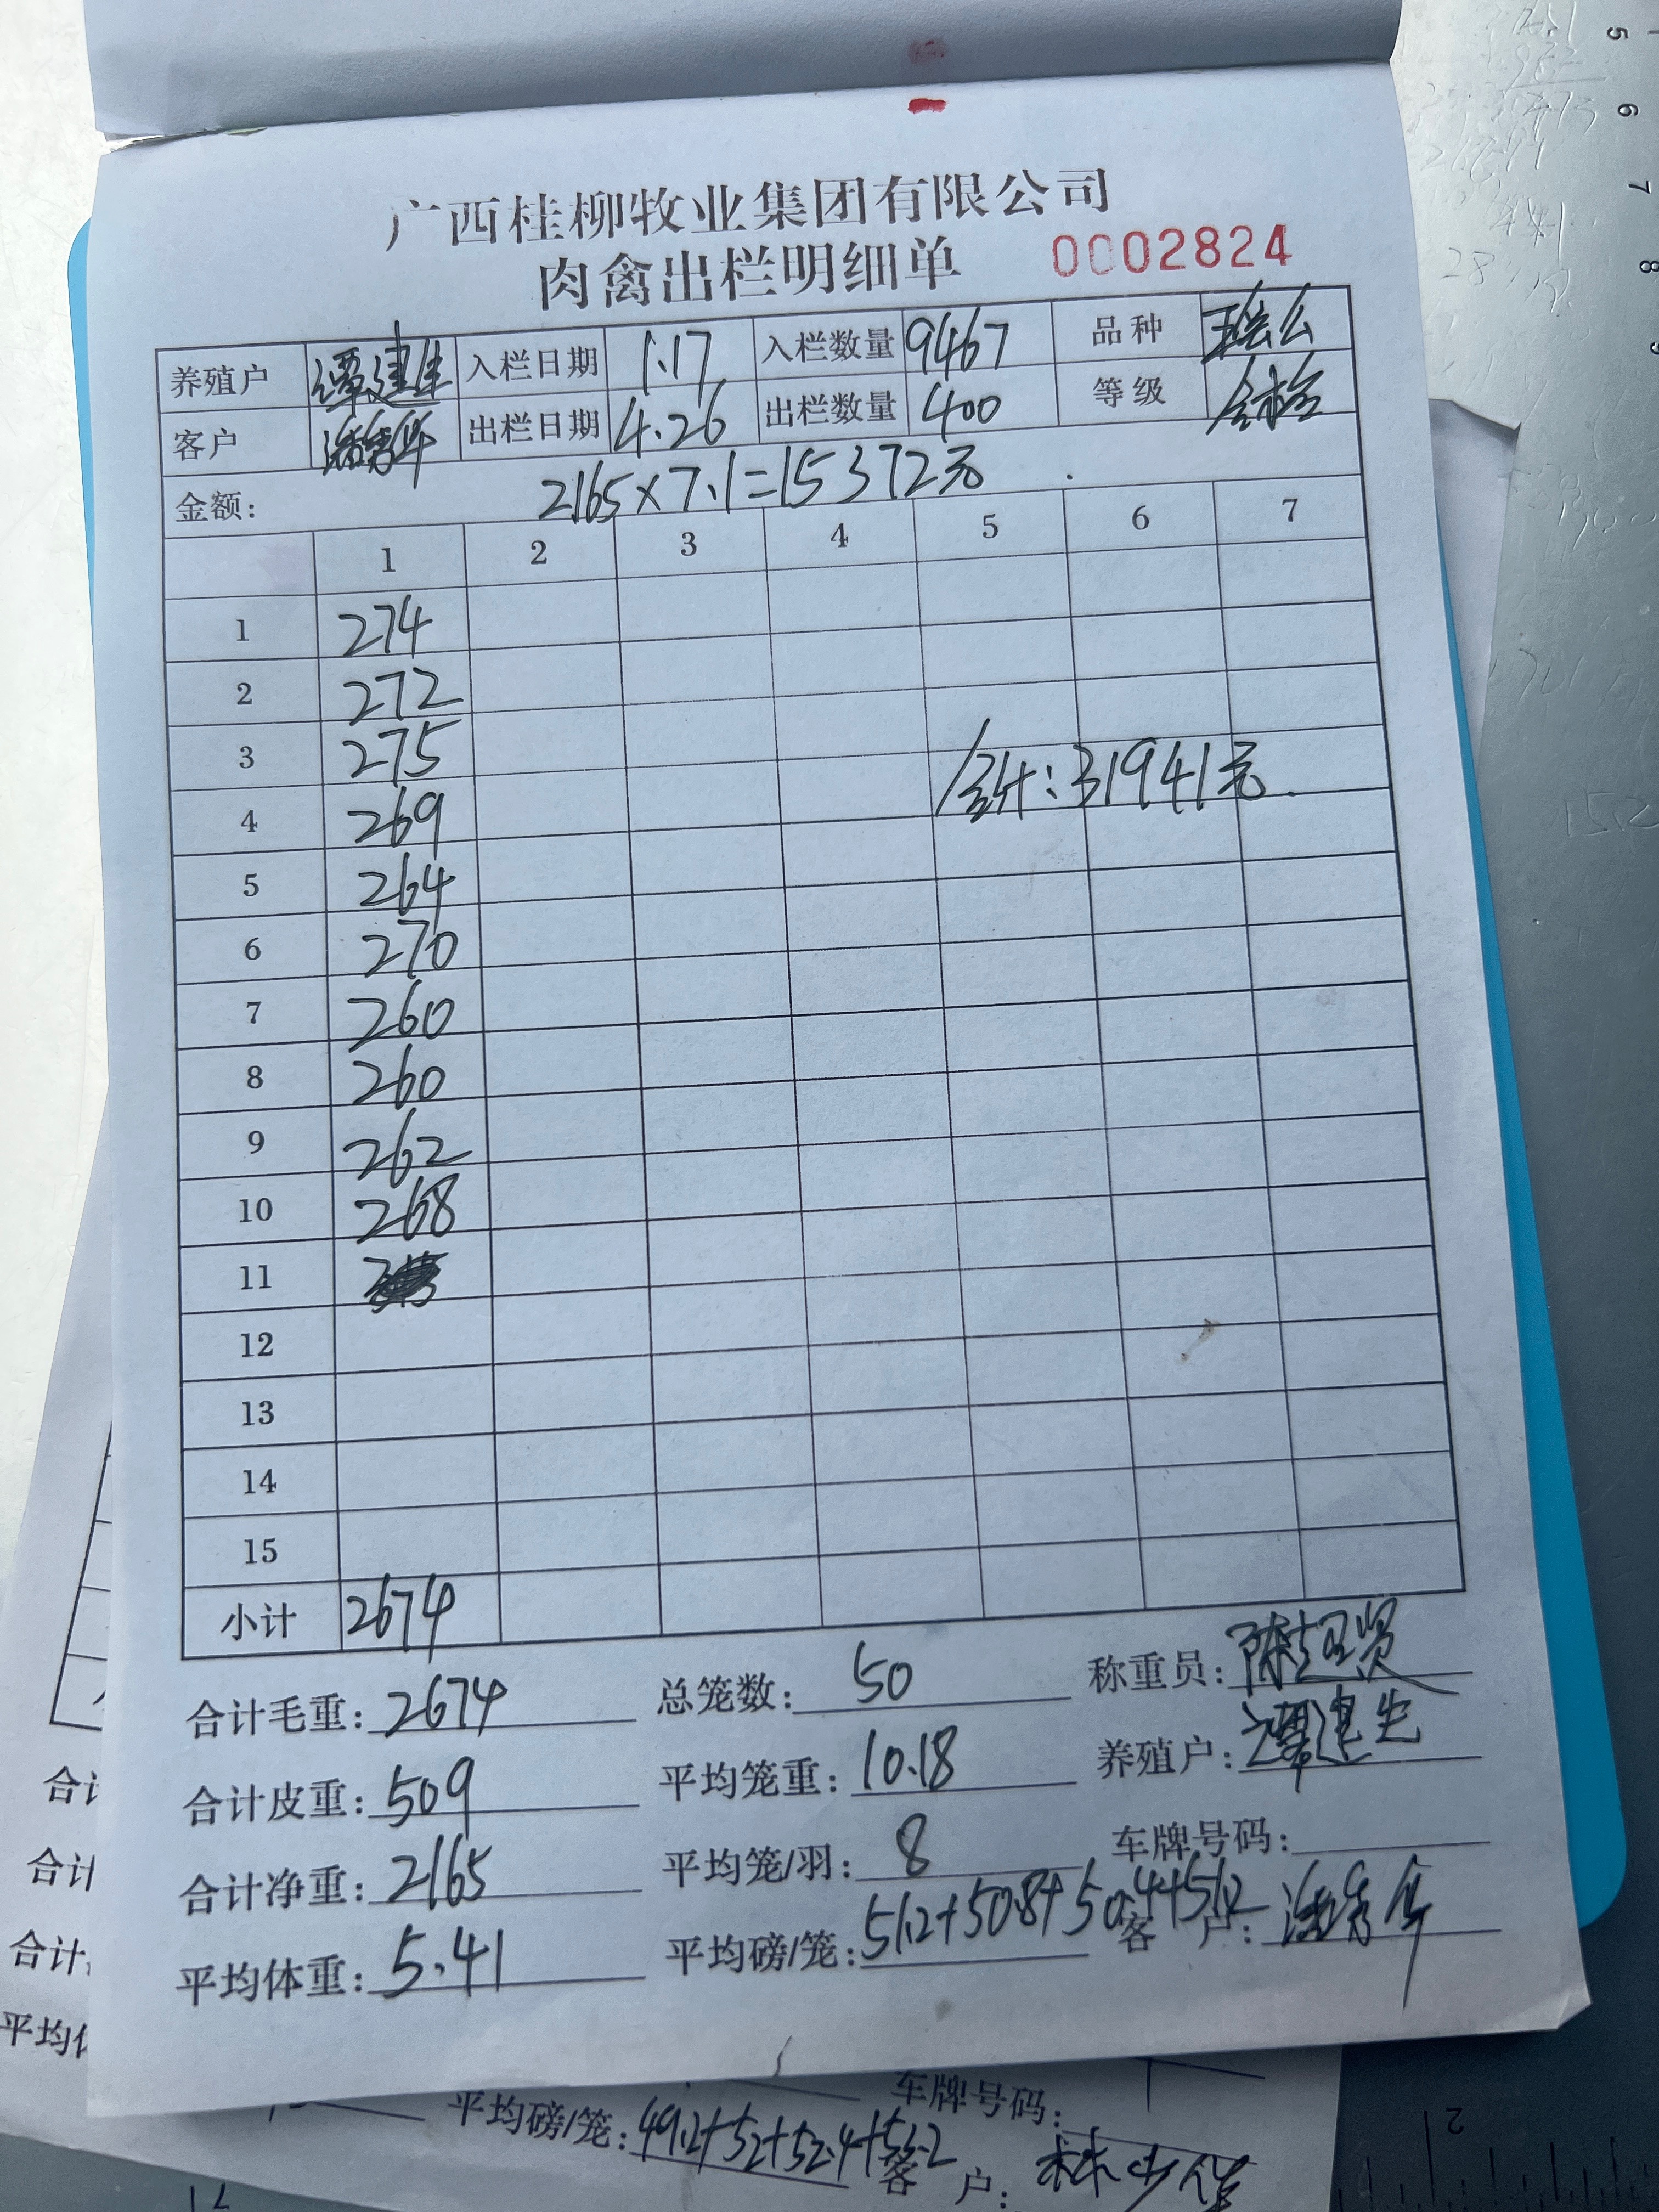 广西桂柳牧业集团有限公司
肉禽出栏明细单 0002824
养殖户 谭建生 入栏日期 1.17 入栏数量 9467 品种
客户 出栏日期 4.26 出栏数量 400 等级
金额: 2165×7.1=15372元
1 2 3 4 5 6 7
1 274
2 272
3 275
合计:31941元
4 269
5 264
6 270
7 260
8 260
9 262
10 268
11
12
13
14
15
小计 2674
合计毛重: 2674 总笼数: 50 称重员:
合计皮重: 509 平均笼重: 10.18 养殖户: 谭建生
合计净重: 2165 平均笼/羽: 8 车牌号码:
平均体重: 5.41 平均磅/笼: 51.2+50.8+50.4+51.2 客 户:
合计
合计
合计
平均体
平均磅/笼: 49.2+52+52.4+52.2 车牌号码:
客 户:
5
6
7
8
9
2